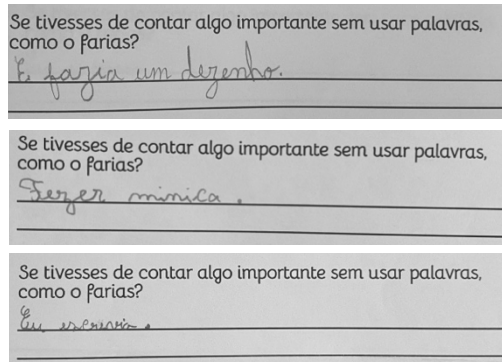 Se tivesses de contar algo importante sem usar palavras,
como o farias?
E fazia um dezenho.
Se tivesses de contar algo importante sem usar palavras,
como o farias?
Fezer mimica.
Se tivesses de contar algo importante sem usar palavras,
como o farias?
Eu escrevia.